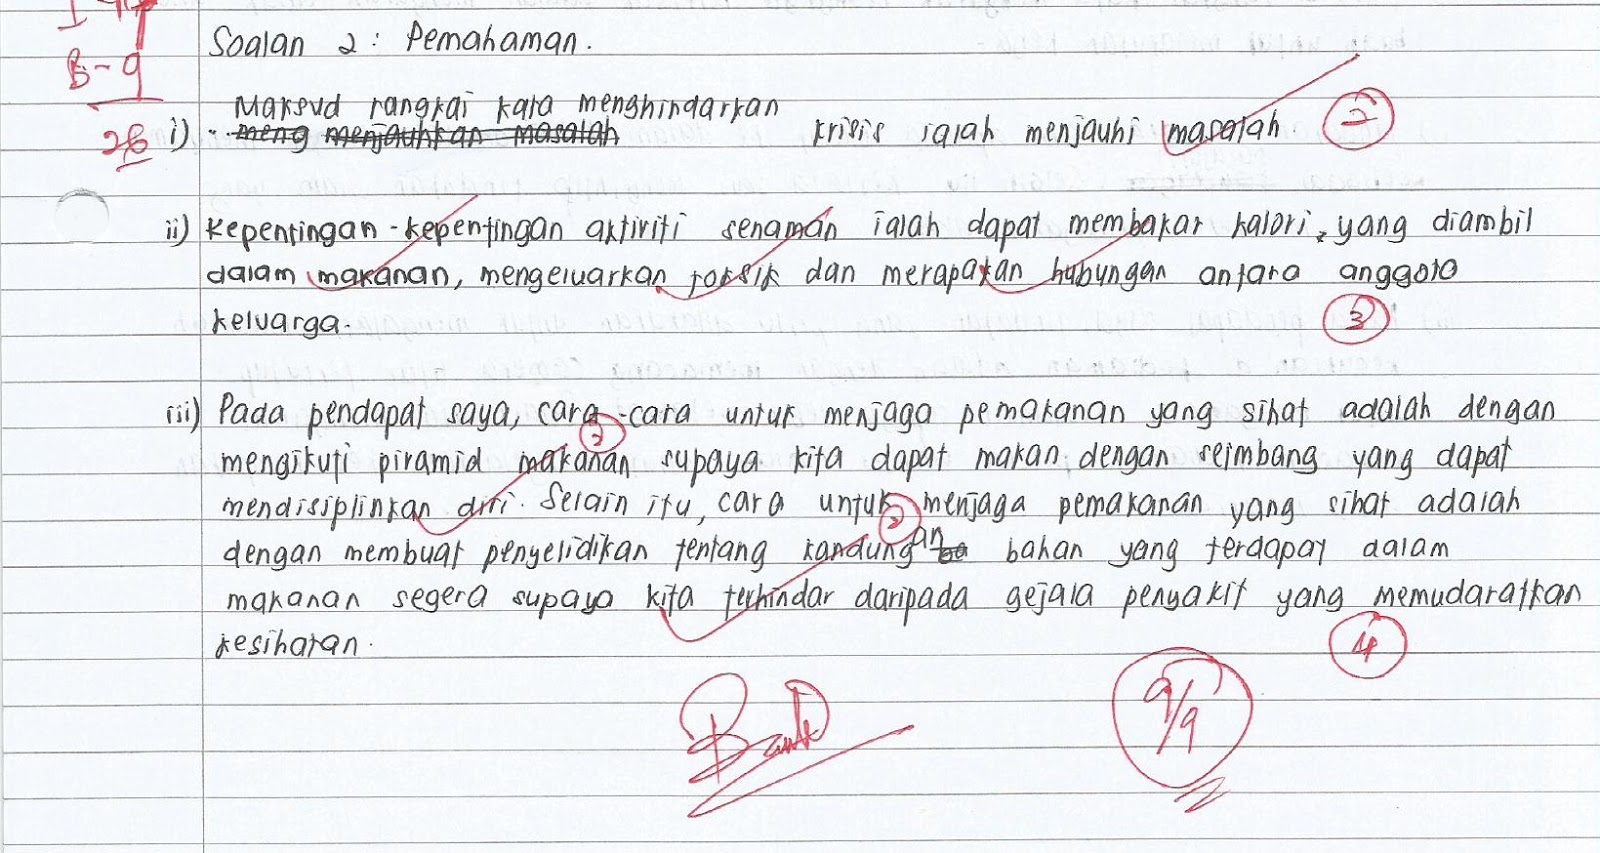 I - 17
B - 9
26
Soalan 2 : Pemahaman.
Maksud rangkai kata menghindarkan
i) meng menjauhkan masalah krisis ialah menjauhi masalah. 2
ii) Kepentingan-kepentingan aktiviti senaman ialah dapat membakar kalori, yang diambil
dalam makanan, mengeluarkan toksik dan merapatkan hubungan antara anggota
keluarga. 3
iii) Pada pendapat saya, cara-cara untuk menjaga pemakanan yang sihat adalah dengan
2
mengikuti piramid makanan supaya kita dapat makan dengan seimbang yang dapat
mendisiplinkan diri. Selain itu, cara untuk menjaga pemakanan yang sihat adalah
2
dengan membuat penyelidikan tentang kandungan bahan yang terdapat dalam
makanan segera supaya kita terhindar daripada gejala penyakit yang memudaratkan
kesihatan. 4
9/9